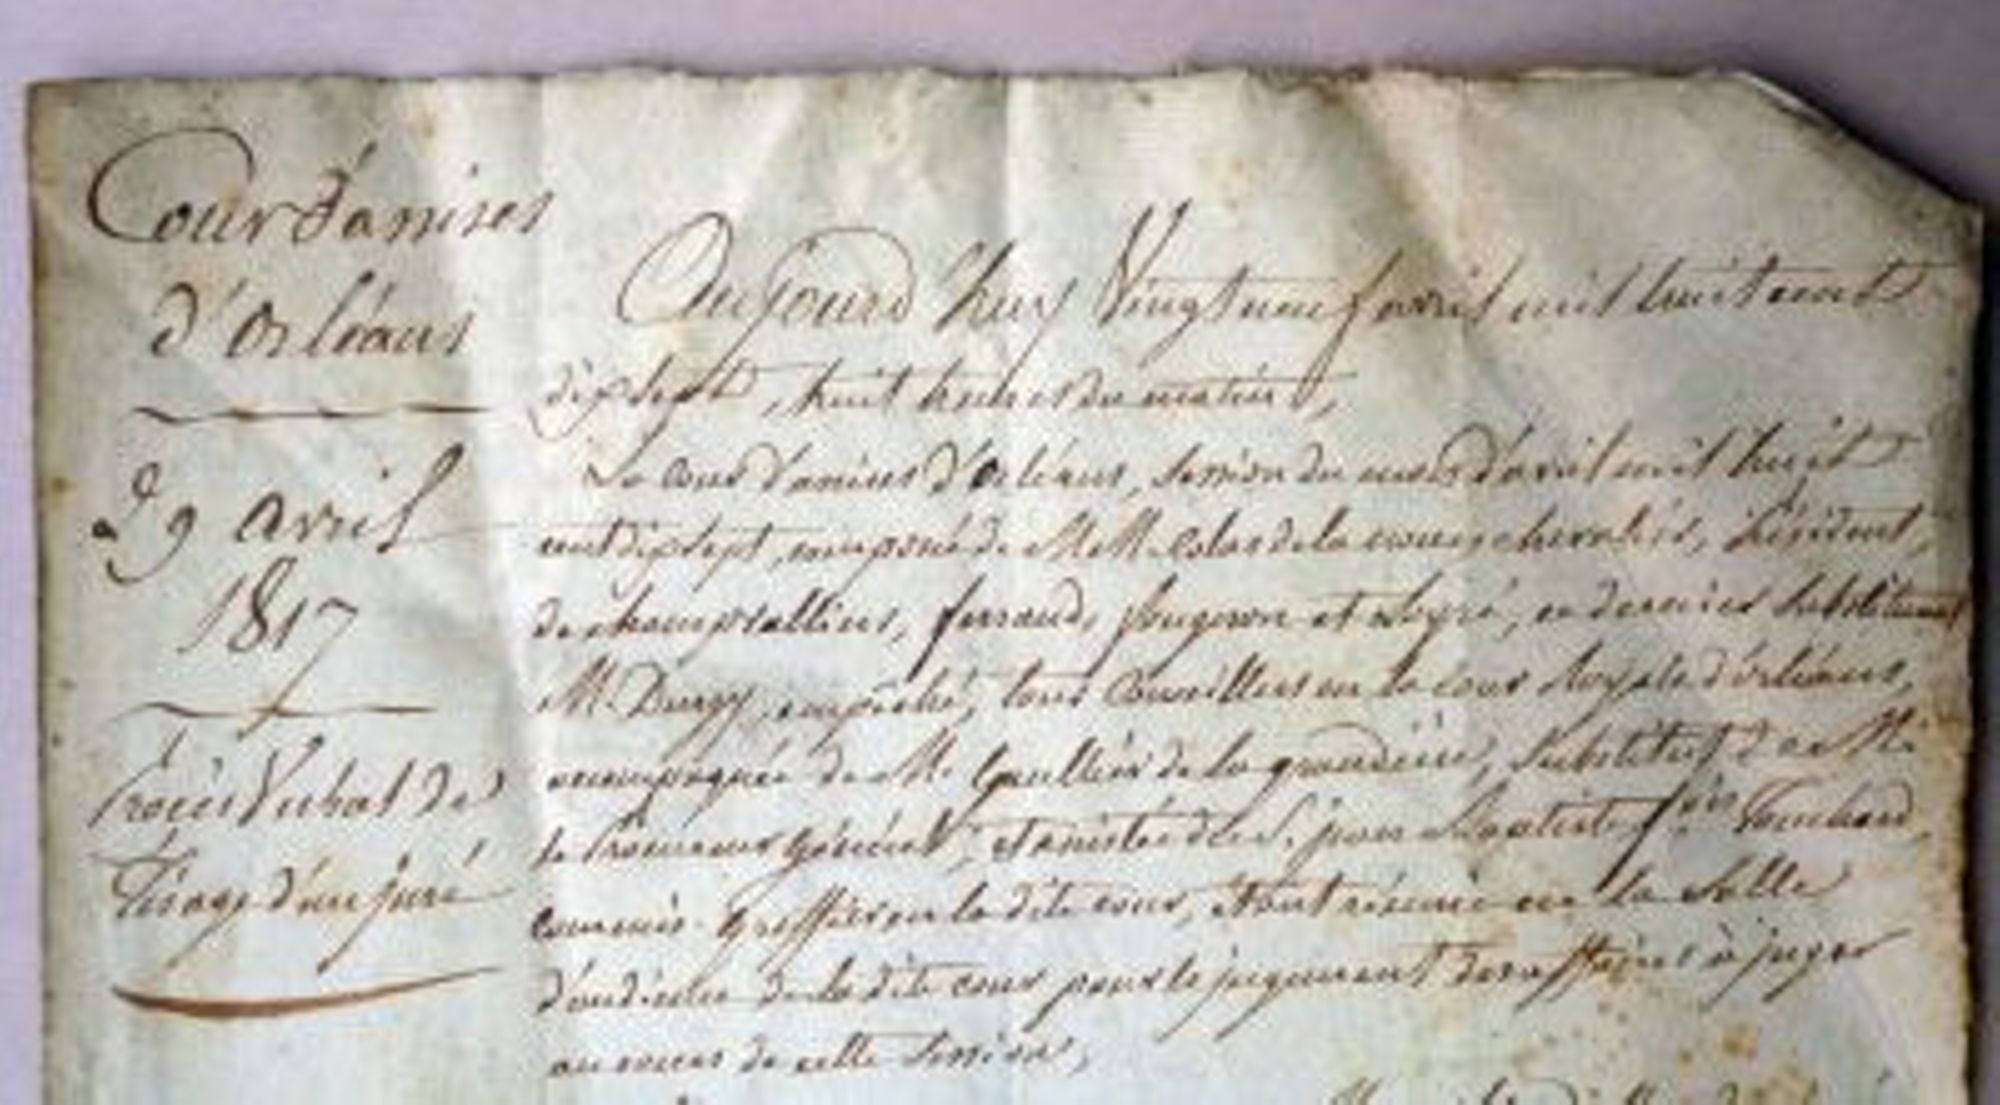 Cour d'assises
d'Orléans
29 avril
1817
Procès Verbal de
Tirage d'un juré
Aujourd'huy Vingt neuf avril mil huit cent
dix sept, huit heures du matin,
La Cour d'assises d'Orléans, session du mois d'avril mil huit
cent dix sept, composée de MM. Colas de la noue, chevalier, Président,
de champvallins, ferrand, fougeron et Légré, ce dernier substituant
M. Durzy, empêché, tous Conseillers en la cour Royale d'orléans,
accompagnée de M. Gaullier de la grandière, Substitut de M.
le Procureur Général, et assistée de S. jean Baptiste fois Touchard,
commis-Greffier en la dite cour, étant réunie en la Salle
d'audience de la dite cour pour le jugement des affaires à juger
au cours de cette Session,